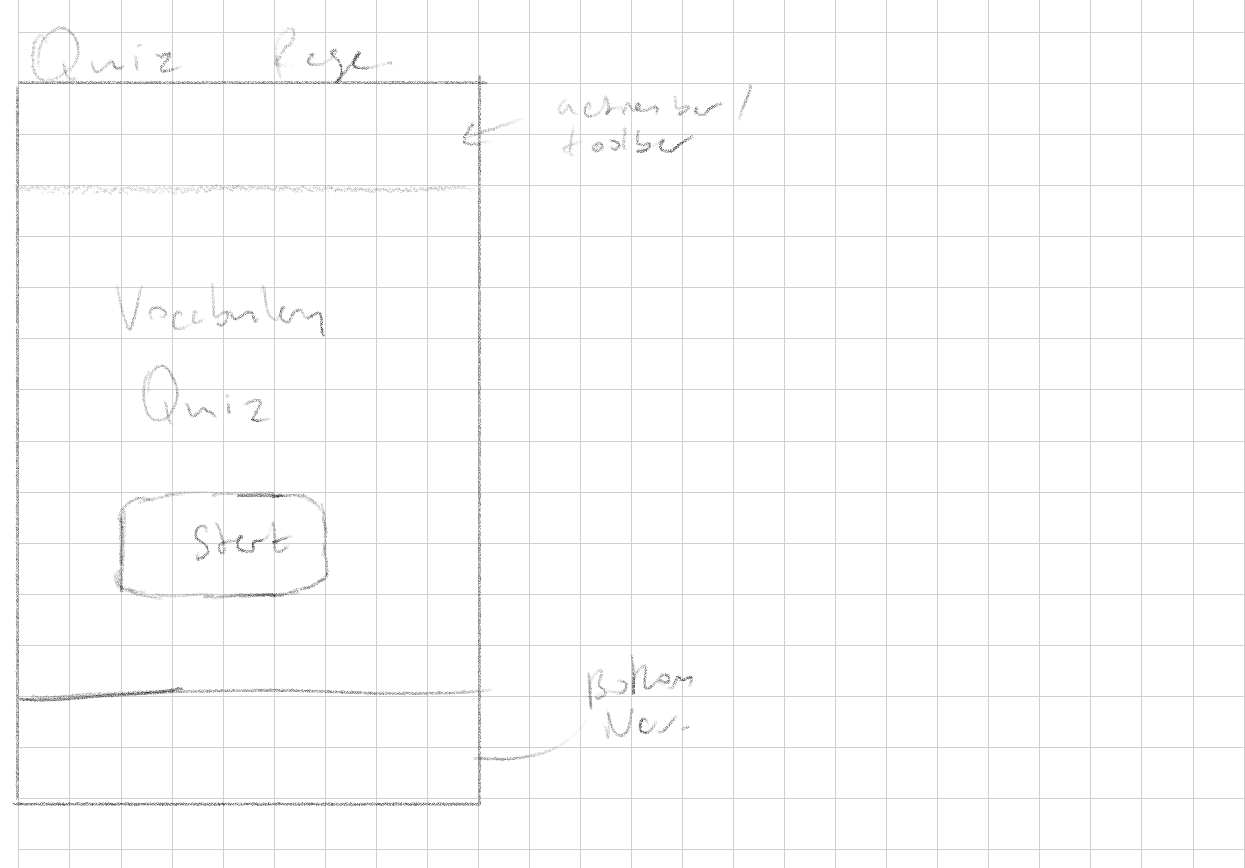 Quiz Page
action bar /
toolbar
Vocabulary
Quiz
Start
Bottom
Nav.